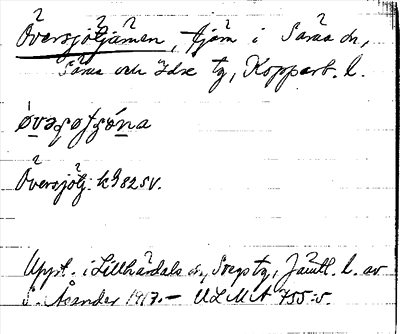 Översjötjärnen, tjärn i Särna sn,
Särna och Idre tg, Kopparb. l.
Översjötj. k9 82 SV.
Uppt. i Lillhärdals sn, Svegs tg, Jämtl. l. av
S. Åsander 1917. — ULMA 755:5.